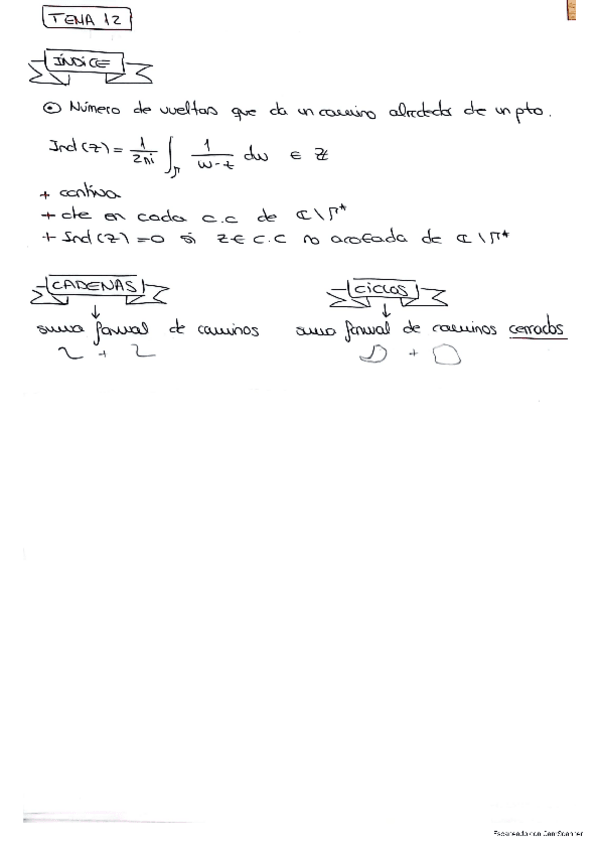 TEMA 12
ÍNDICE
⊙ Número de vueltas que da un camino alrededor de un pto.
Ind(z) = 1/2πi ∫_Γ 1/(w-z) dw ∈ ℤ
+ continua
+ cte en cada c.c de ℂ\Γ*
+ Ind(z)=0 si z∈ c.c no acotada de ℂ\Γ*
CADENAS
suma formal de caminos
+
CICLOS
suma formal de caminos cerrados
+
Escaneado con CamScanner